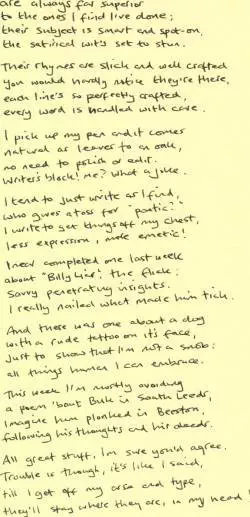 are always far superior
to the ones I find I've done;
their subject is smart and spot-on,
the satirical wit's set to stun.

Their rhymes are slick and well crafted
you would hardly notice they're there,
each line's so perfectly crafted,
every word is handled with care.

I pick up my pen and it comes
natural as leaves to an oak,
no need to polish or edit.
Writer's block? me? What a joke.

I tend to just write as I find,
who gives a toss for "poetic?"
I write to get things off my chest,
less expression, more emetic!

I near completed one last week
about "Billy Liar", the flick:
Savvy penetrating insights.
I really nailed what made him tick.

And there was one about a dog
with a rude tattoo on its face,
Just to show that I'm not a snob:
all things human I can embrace.

This week I'm mostly avoiding
a poem 'bout Bulk in South Leeds,
Imagine him plonked in Beeston,
following his thoughts and his deeds.

All great stuff, I'm sure you'd agree.
Trouble is though, it's like I said,
till I get off my arse and type,
they'll stay where they are, in my head!